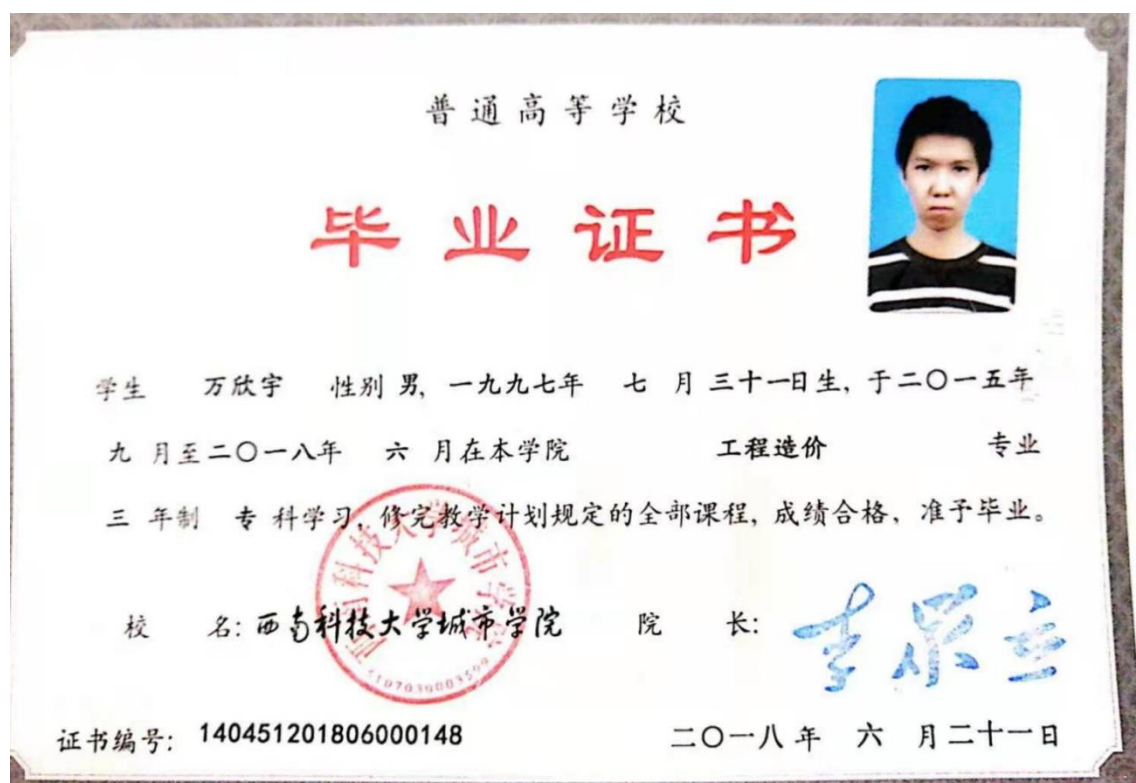 普通高等学校
毕业证书
学生 万欣宇 性别 男, 一九九七年 七 月 三十一日生, 于二〇一五年
九 月至二〇一八年 六 月在本学院 工程造价 专业
三 年制 专 科学习, 修完教学计划规定的全部课程, 成绩合格, 准予毕业。
西南科技大学城市学院
5107030003599
校 名: 西南科技大学城市学院 院 长:
证书编号: 140451201806000148 二〇一八年 六 月二十一日